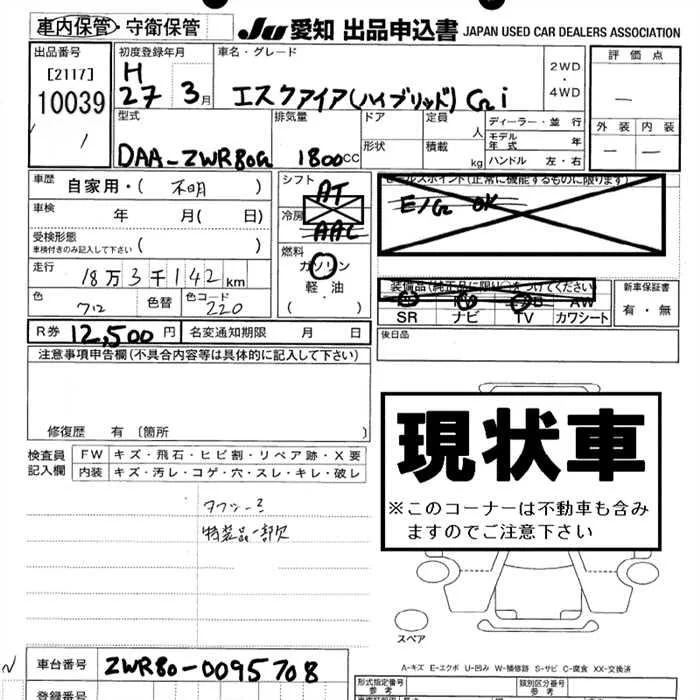 車内保管・守衛保管 JU 愛知 出品申込書 JAPAN USED CAR DEALERS ASSOCIATION
出品番号 初度登録年月 車名・グレード 2WD・4WD 評価点
[2117] H
10039 27 3月 エスクァイア(ハイブリッド) Gi —
型式 排気量 ドア 定員 人 ディーラー・並行 外装 内装
形状 積載 kg モデル年式 年 — —
DAA-ZWR80G 1800CC ハンドル 左・右
車歴 自家用・( 不明 ) シフト AT セールスポイント(正常に機能するものに限ります)
車検 年 月( 日) 冷房 AAC E/G OK
受検形態 車検付きのみ記入して下さい ( ) 燃料 ガソリン
走行 18万3千142km 軽・油 装備品(純正品に限り○をつけてください) 新車保証書
色 色替 色コード 220 ・( ) AW 有・無
SR ナビ TV カワシート
R券 12,500円 名変通知期限 月 日 後日品
注意事項申告欄(不具合内容等は具体的に記入して下さい)
修復歴 有 〔箇所 〕
検査員記入欄 FW キズ・飛石・ヒビ割・リペア跡・X要
内装 キズ・汚レ・コゲ・穴・スレ・キレ・破レ
現状車
※このコーナーは不動車も含み
ますのでご注意下さい
特装品一部欠
スペア
A-キズ E-エクボ U-凹み W-補修跡 S-サビ C-腐食 XX-交換済
車台番号 ZWR80-0095708
登録番号 形式指定番号 参考 類別区分番号 参考